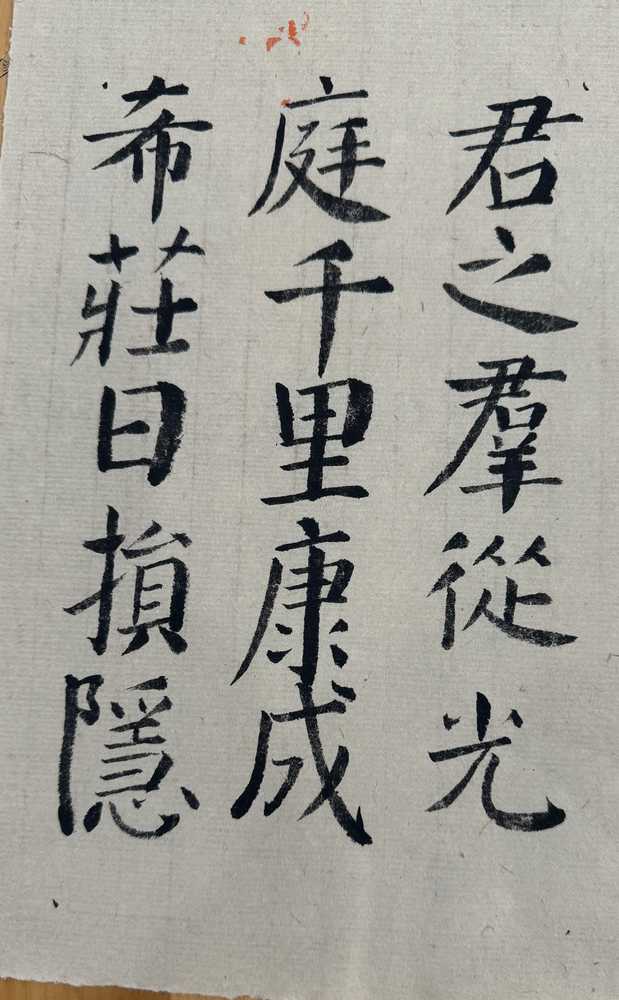 君之羣從光
庭千里康成
希莊日損隱